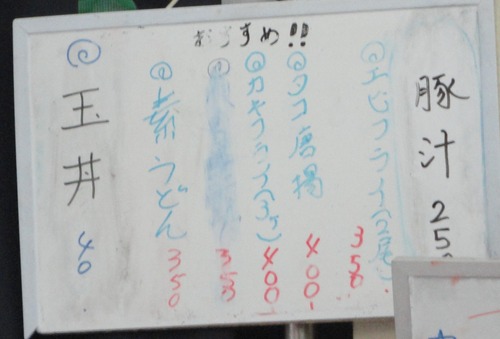 おすすめ!!
豚汁 25
エビフライ(2尾) 350
タコ唐揚 400
カキフライ(3ケ) 400
350
素うどん 350
玉丼 40